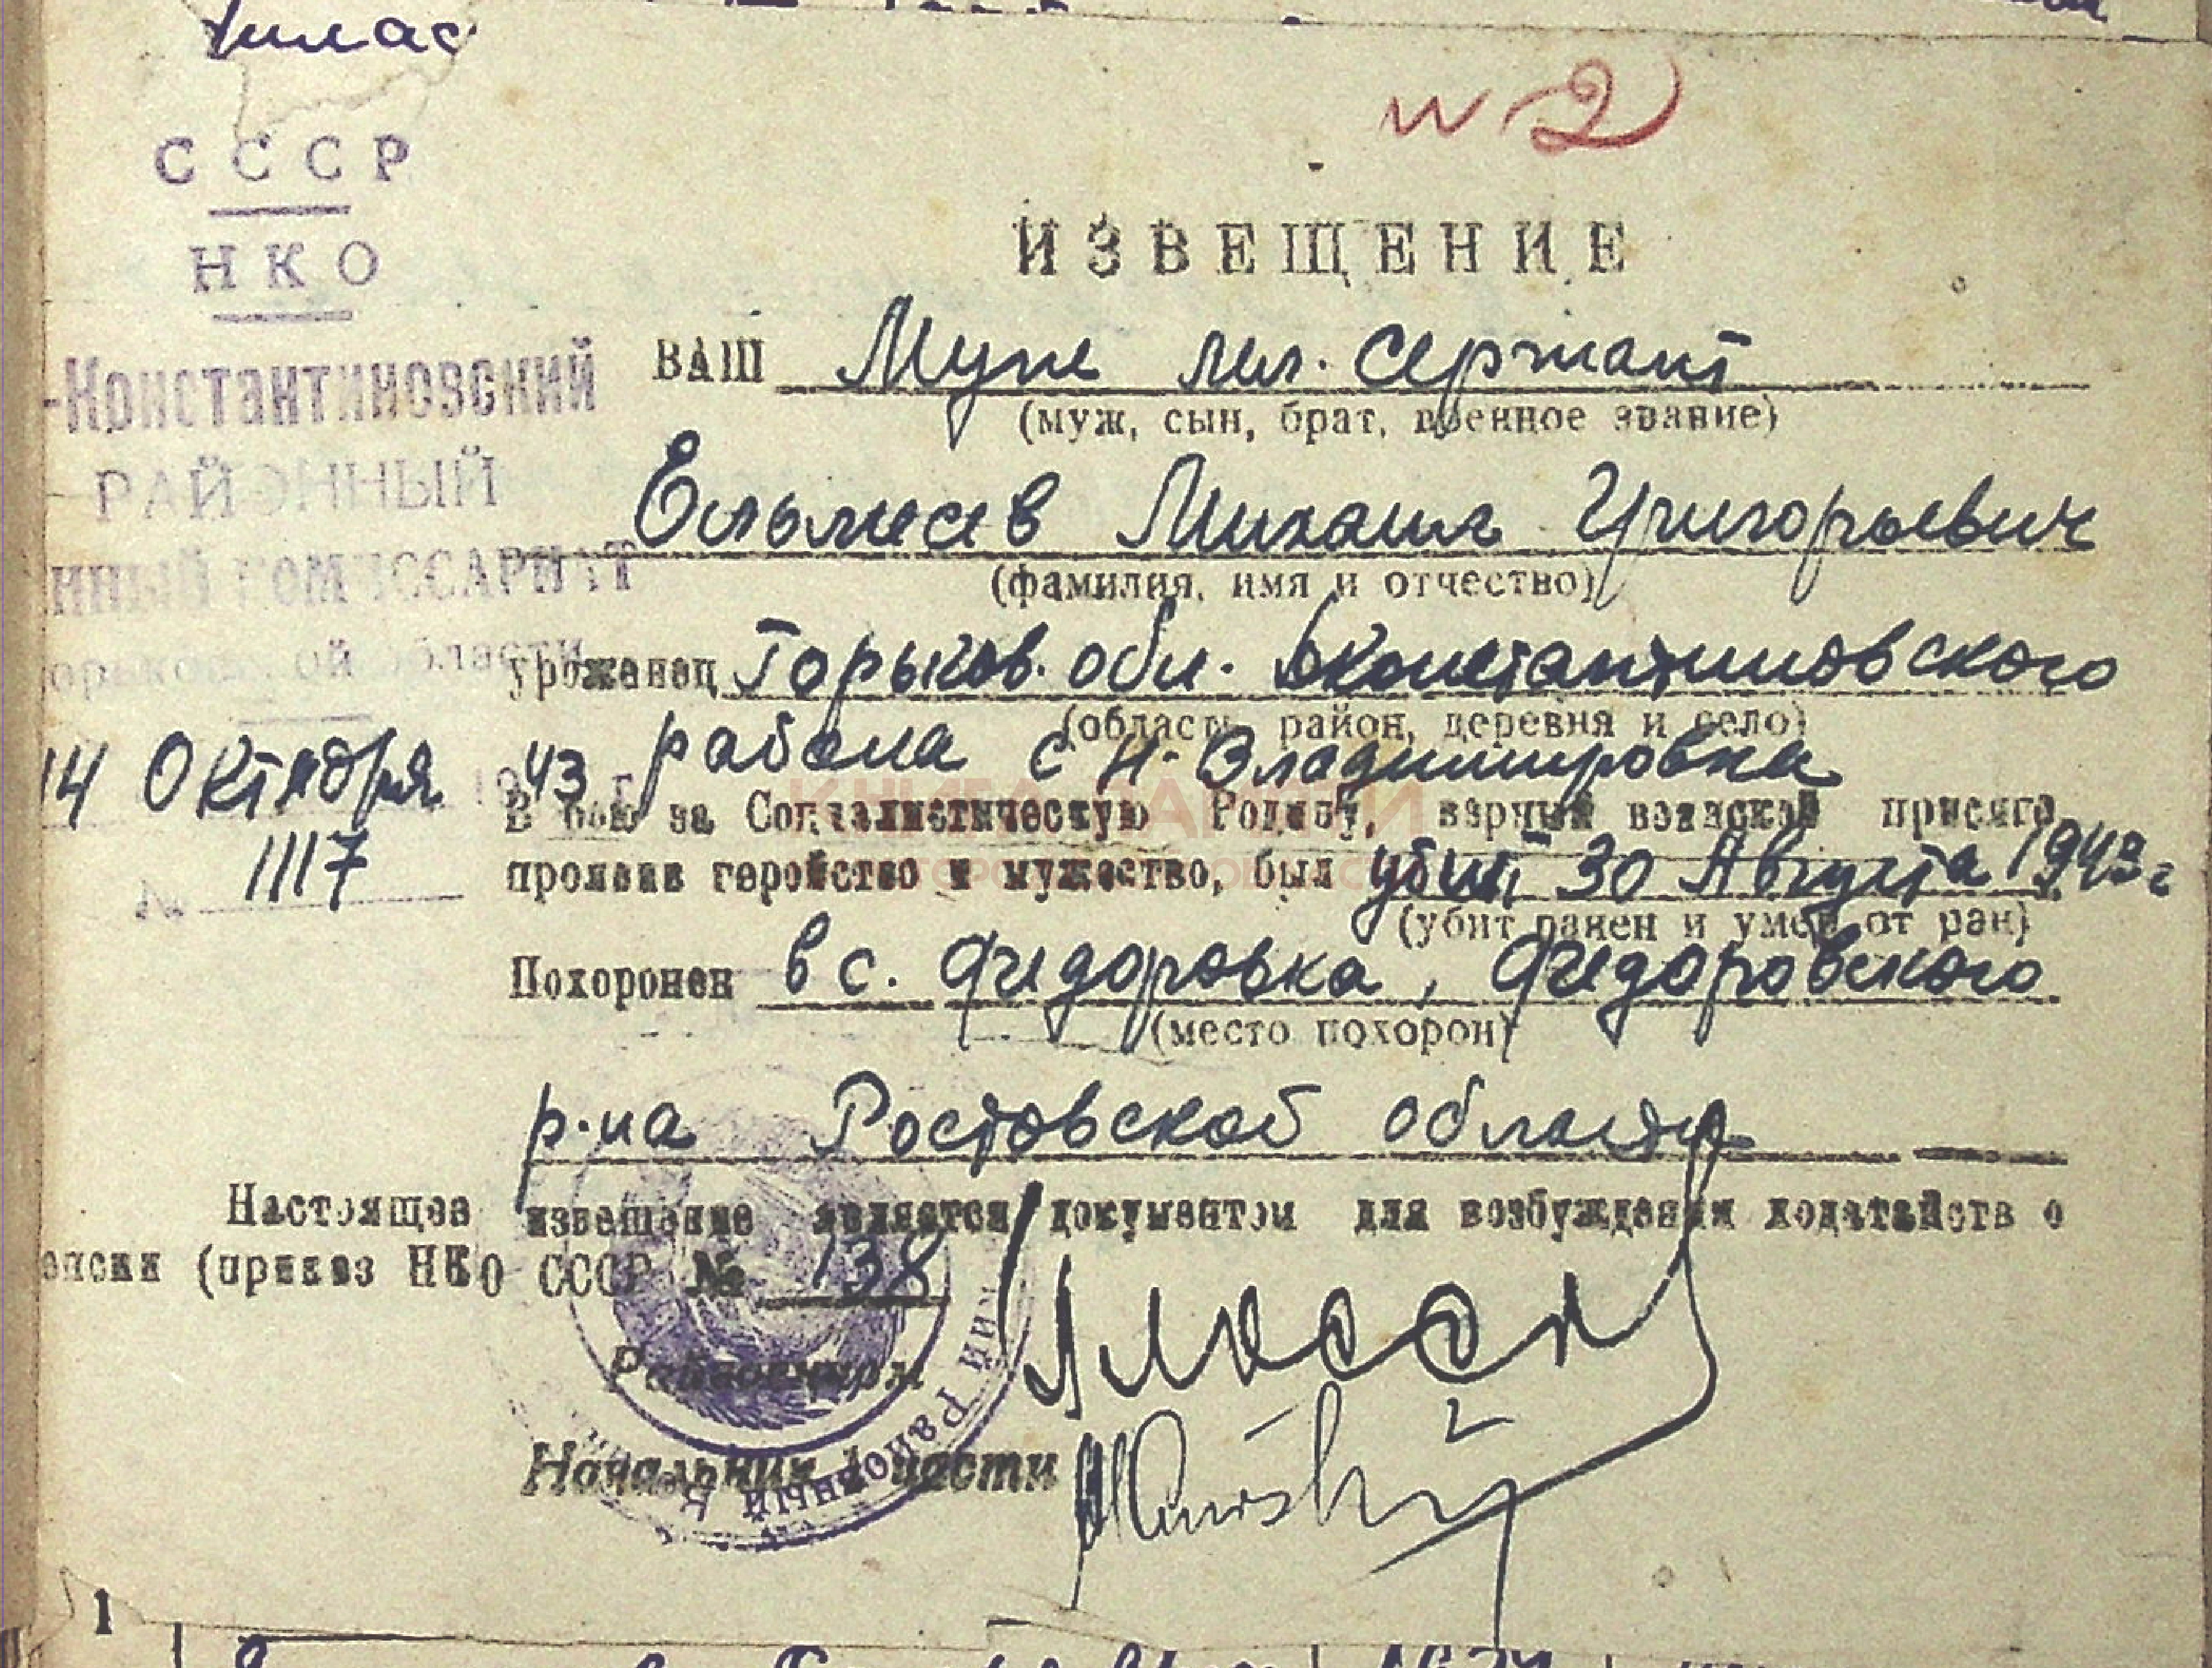 № 2
СССР
НКО
-Константиновский
РАЙОННЫЙ
ИННЫЙ КОМИССАРИАТ
орьковской области
14 Октября 1943 г
№ 1117
ИЗВЕЩЕНИЕ
ВАШ Муж мл. сержант
(муж, сын, брат, военное звание)
Михаил Григорьевич
(фамилия, имя и отчество)
уроженец Горьков. обл. Дконстантиновского
(область, район, деревня и село)
района с Н-Владимировка
В бою за Социалистическую Родину, верный воинской присяге,
проявив геройство и мужество, был убит 30 Августа 1943 г
(убит ранен и умер от ран)
Похоронен в с. Федоровка, Федоровского
(место похорон)
р-на Ростовской области
Настоящее извещение является документом для возбуждения ходатайств о
енсии (приказ НКО СССР № 138
Райвоенком
Начальник 1 части
РАЙОННЫЙ
1
КНИГА ПАМЯТИ